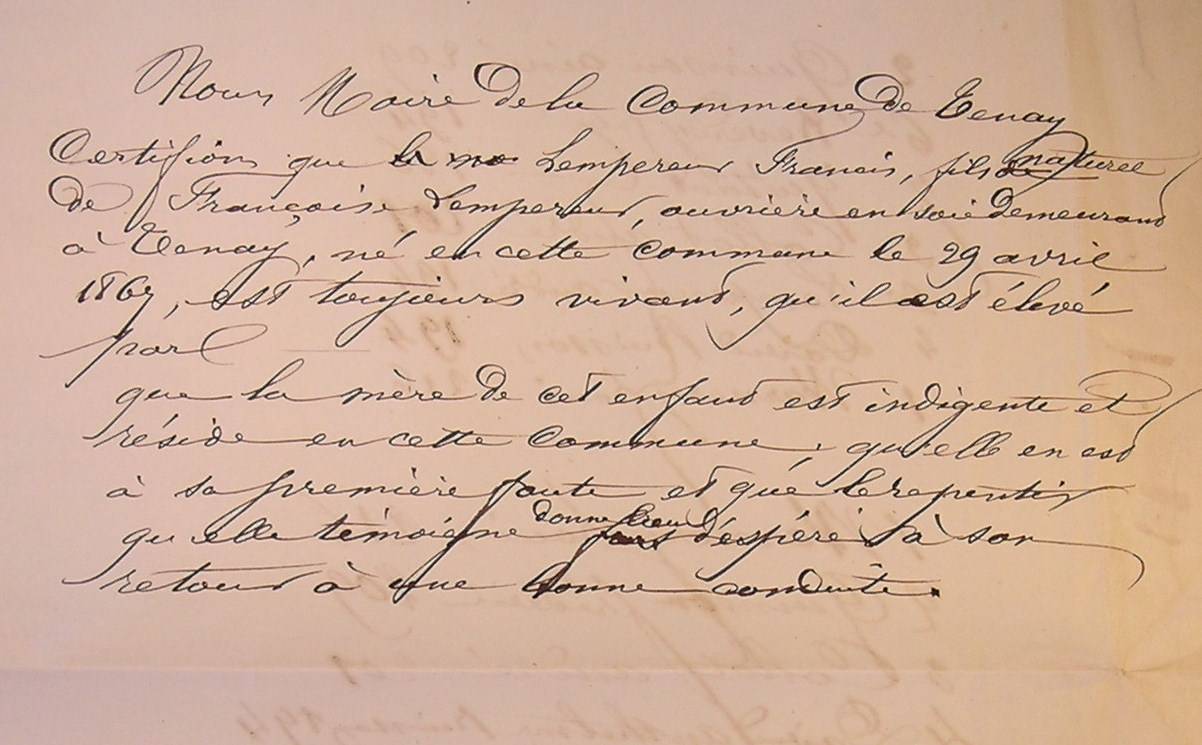 Nous Maire de la Commune de Tenay
Certifions que le no Lempereur Francis, fils naturel
de Françoise Lempereur, ouvrière en soie demeurant
à Tenay, né en cette commune le 29 avril
1867, est toujours vivant, qu'il est élevé
par
que la mère de cet enfant est indigente et
réside en cette commune, qu'elle en est
à sa première faute et que le repentir
donne lieu
qu'elle témoigne d'espéré à son
retour à une bonne conduite.